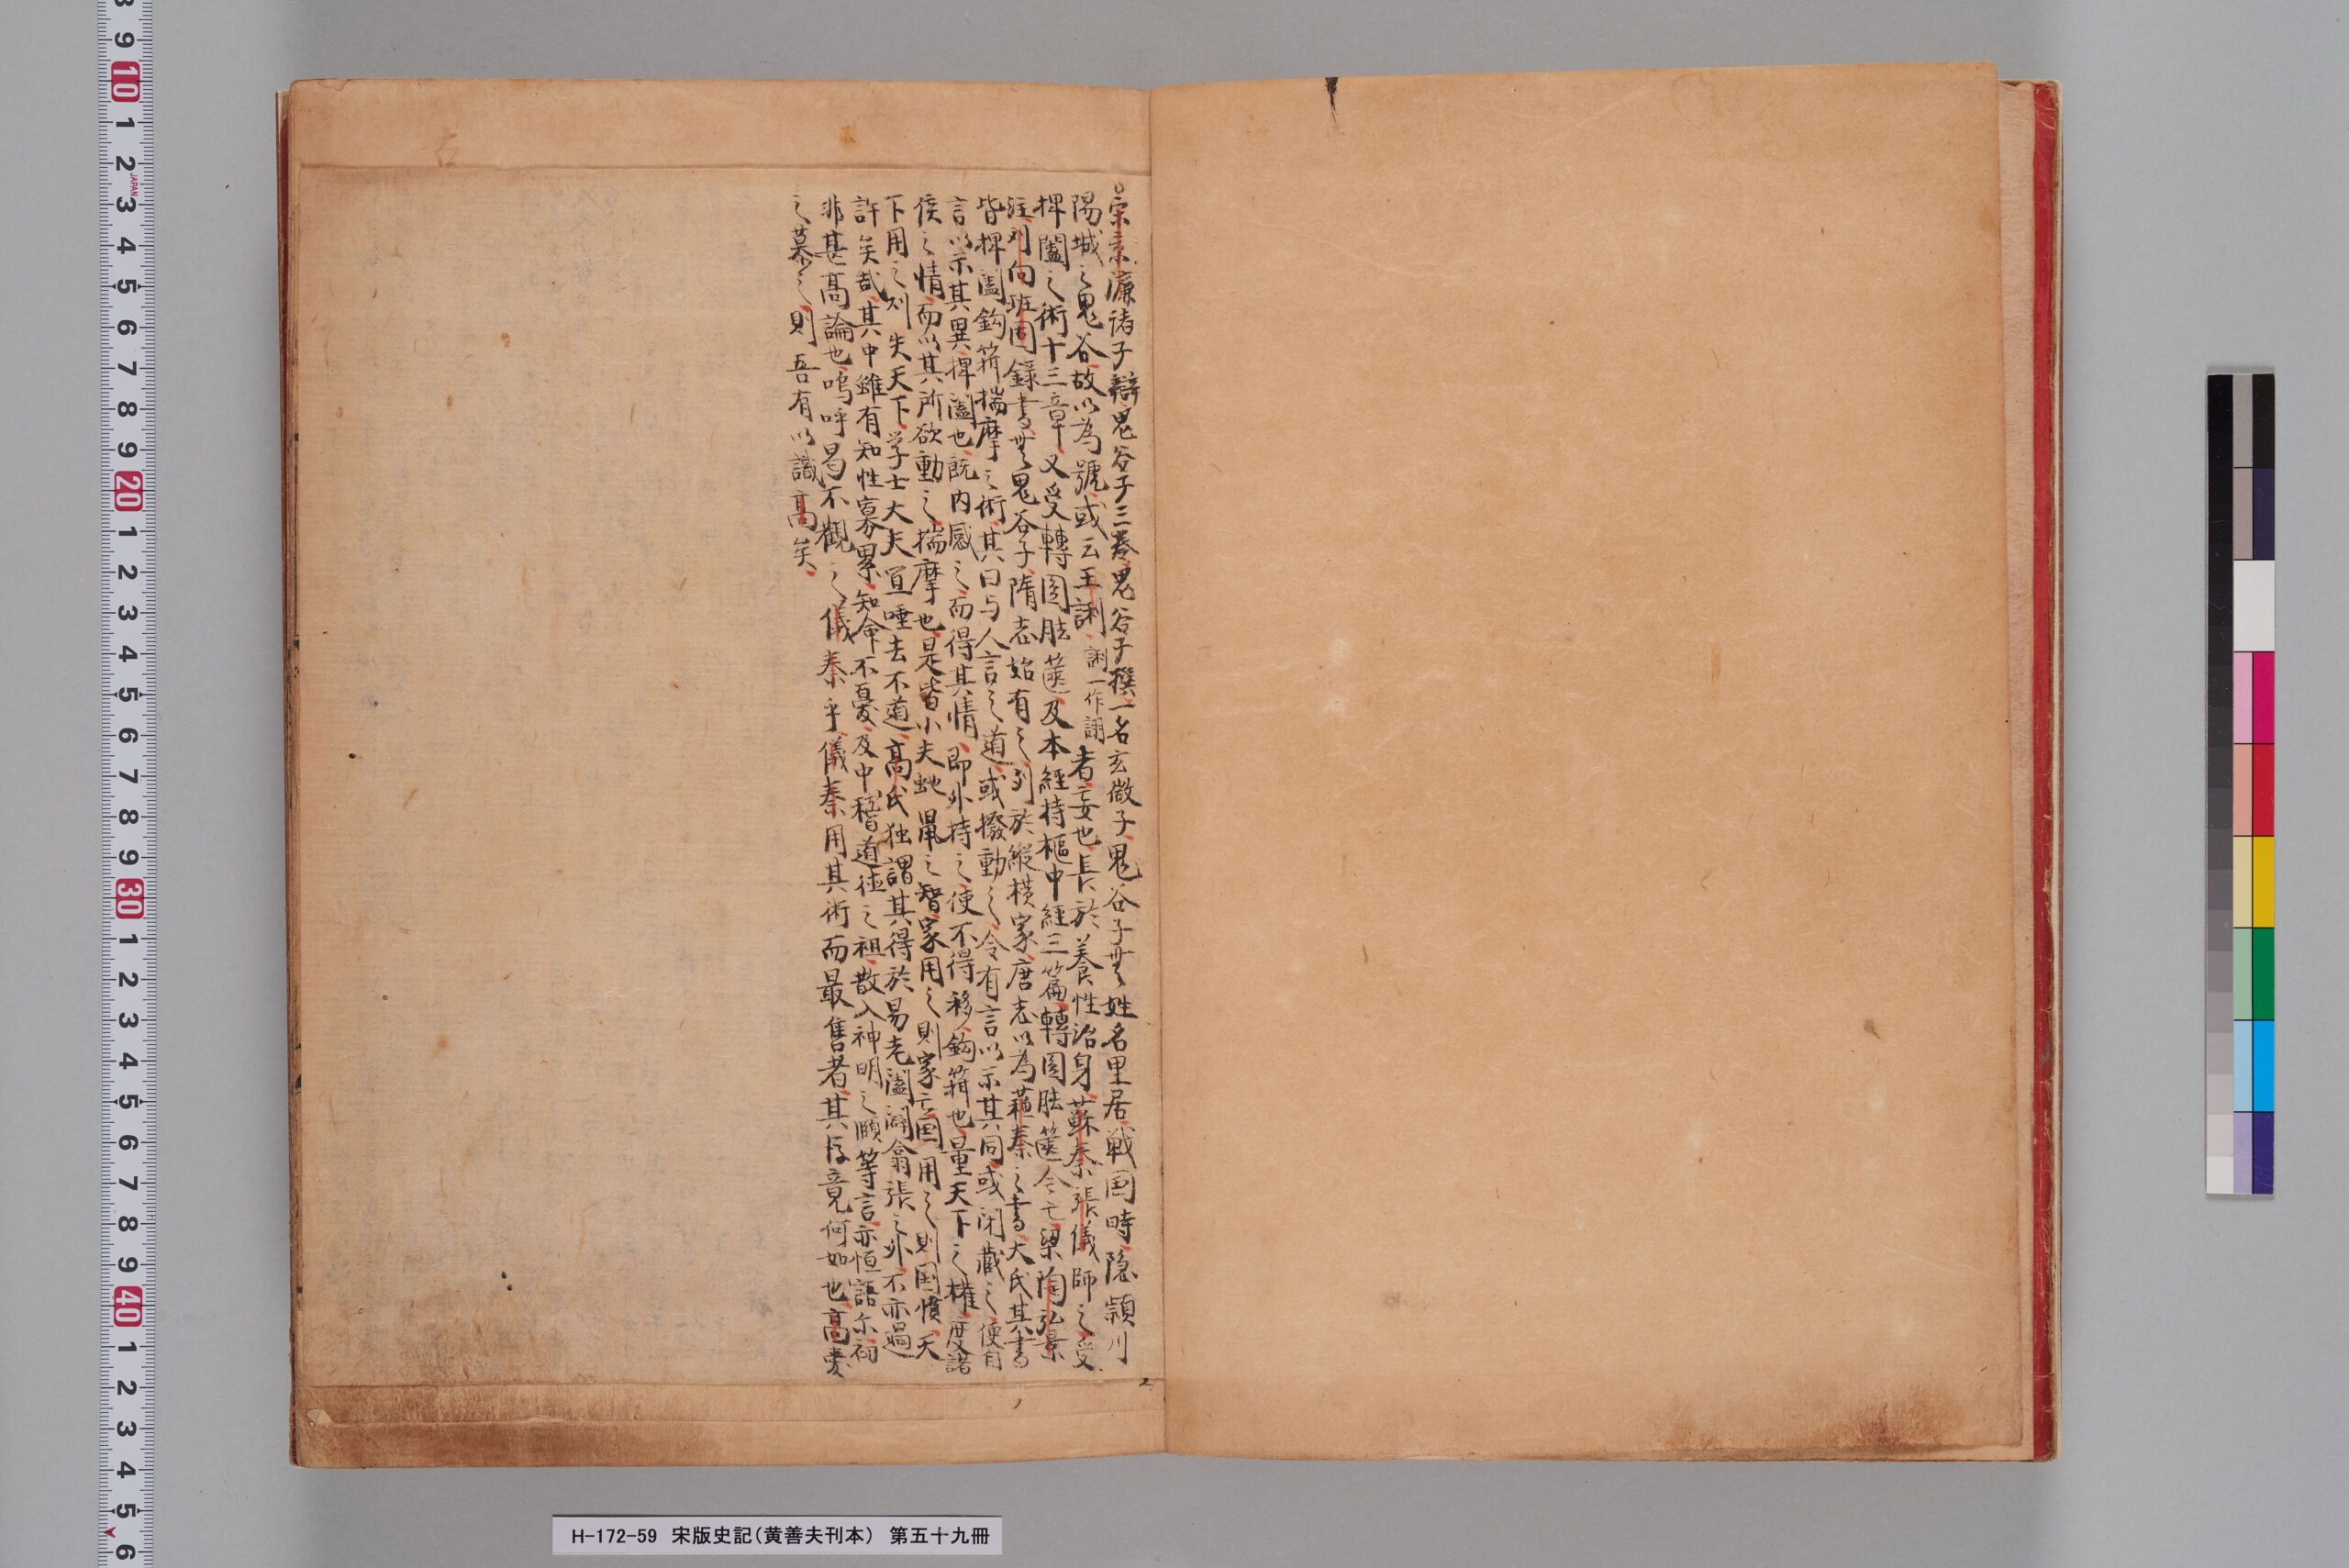 宋景濂諸子辯鬼谷子三卷鬼谷子撰一名玄微子鬼谷子無姓名里居戦国時隐潁川
陽城之鬼谷故以為號或云王 一作詡者妄也長於養性治身蘇秦張儀師之受
捭闔之術十三章又受轉圓胠篋及本經持樞中經三篇轉圓胠篋今亡梁陶弘景
注刘向班固録書無鬼谷子隋志始有之列於縦横家唐志以為蘓秦之書大氐其書
皆捭闔鈎箝揣摩之術其曰与人言之道或撥動之令有言以示其同或闭蔵之使自
言以示其異捭闔也既内感之而得其情即外持之使不得移鈎箝也量天下之權度諸
侯之情而以其所欲動之揣摩也是皆小夫虵鼠之智家用之則家亡国用之則国僨天
下用之则失天下学士大夫宜唾去不道高氏独謂其得於易老闔闢翕張之外不亦過
許矣哉其中雖有知性寡累知命不憂及中稽道徳之祖散入神明之頤等言亦恒語尓初
非甚高論也嗚呼曷不觀之儀秦乎儀秦用其術而最售者其後竟何如也高愛
之慕之則吾有以識高矣
H-172-59 宋版史記(黄善夫刊本) 第五十九冊